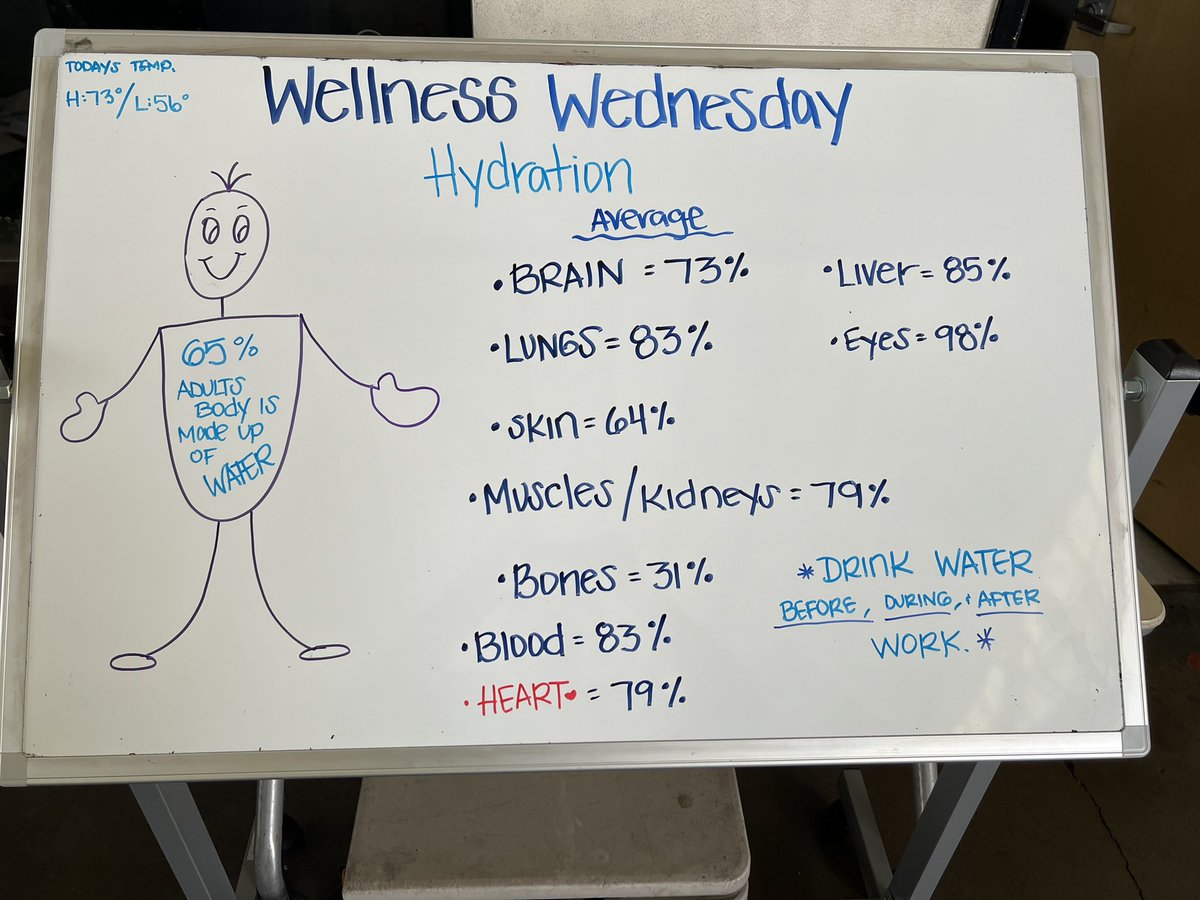 TODAYS TEMP.
H:73°/L:56°
Wellness Wednesday
Hydration
Average
•BRAIN = 73%
•Liver = 85%
•LUNGS = 83%
•Eyes = 98%
•Skin = 64%
•Muscles/Kidneys = 79%
•Bones = 31%
•Blood = 83%
•HEART♥ = 79%
65%
ADULTS
Body IS
Made up
OF
WATER
*DRINK WATER
BEFORE, DURING, + AFTER
WORK.*